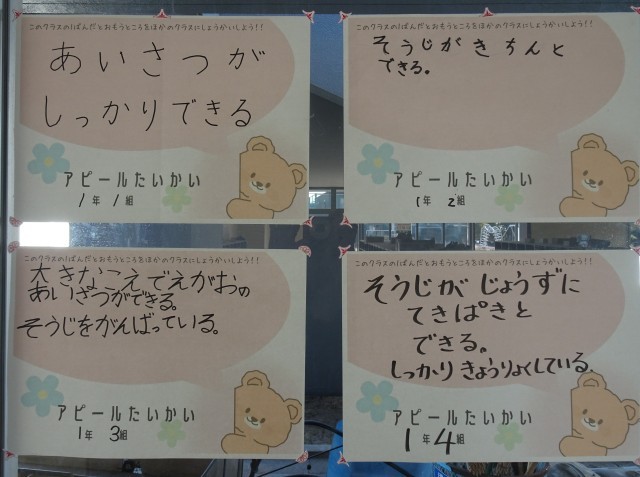 このクラスの1ばんだとおもうところをほかのクラスにしょうかいしよう!!
あいさつが
しっかりできる
アピールたいかい
1年 1組
このクラスの1ばんだとおもうところをほかのクラスにしょうかいしよう!!
そうじがきちんと
できる。
アピールたいかい
1年 2組
このクラスの1ばんだとおもうところをほかのクラスにしょうかいしよう!!
大きなこえでえがおの
あいさつができる。
そうじをがんばっている。
アピールたいかい
1年 3組
このクラスの1ばんだとおもうところをほかのクラスにしょうかいしよう!!
そうじがじょうずに
てきぱきと
できる。
しっかりきょうりょくしている.
アピールたいかい
1年 4組